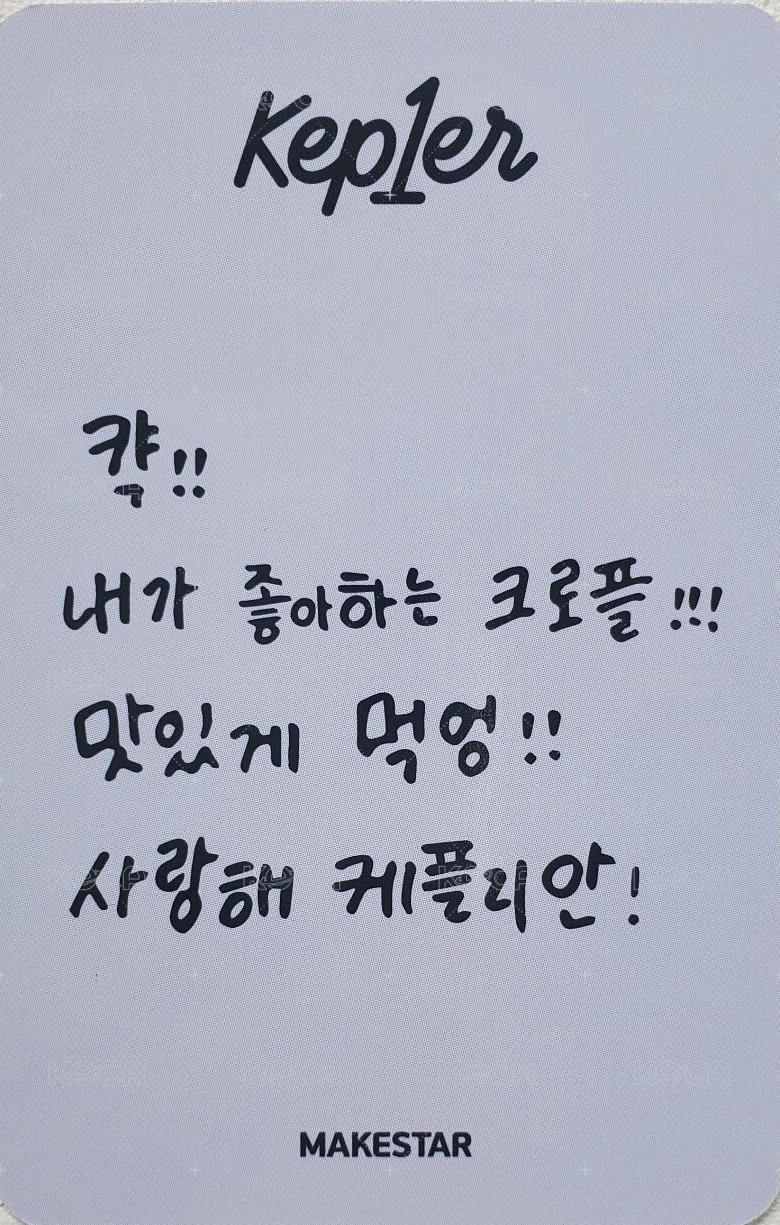 Kep1er
캭!!
내가 좋아하는 크로플!!!
맛있게 먹엉!!
사랑해 케플리안!
MAKESTAR